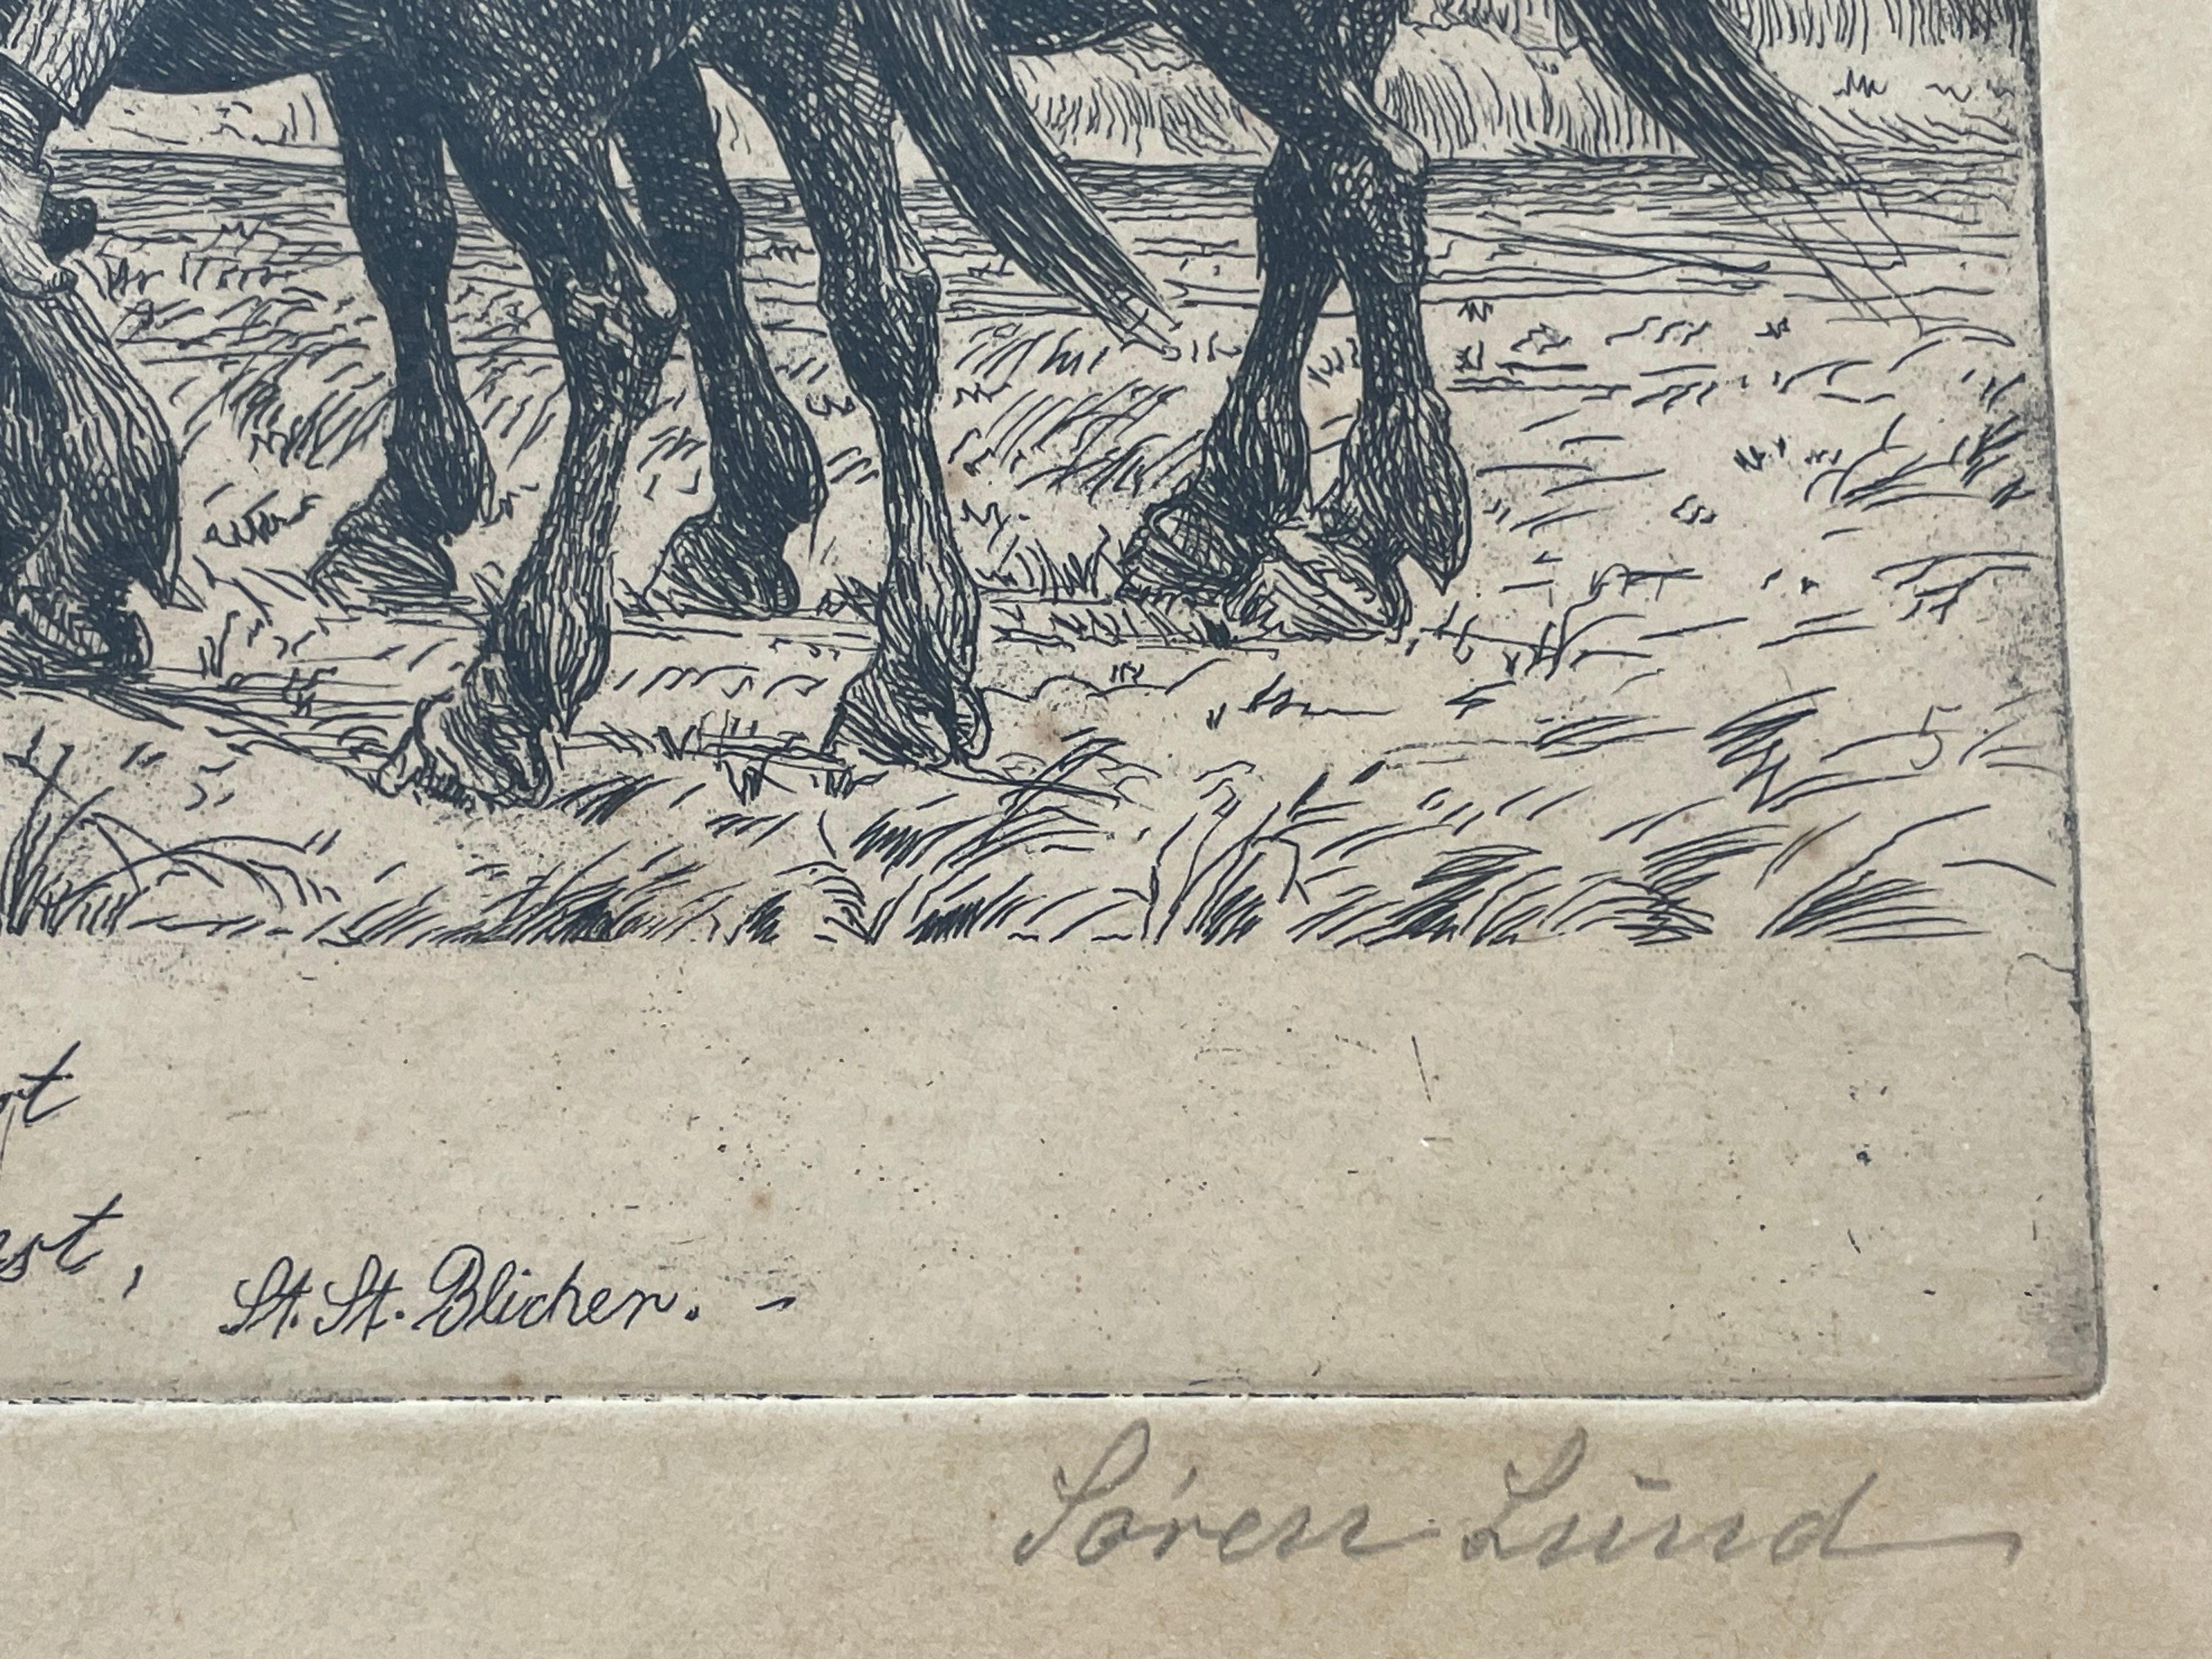 St. St. Blicher. -
Søren Lund